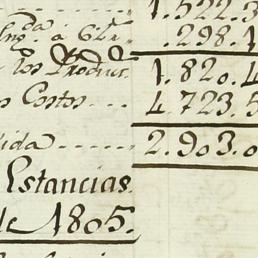 1.522.3
á 6 .298.1
los Product.s 1.820.4
Costos 4.723.5
ida 2.903.0
Estancias.
de 1805.